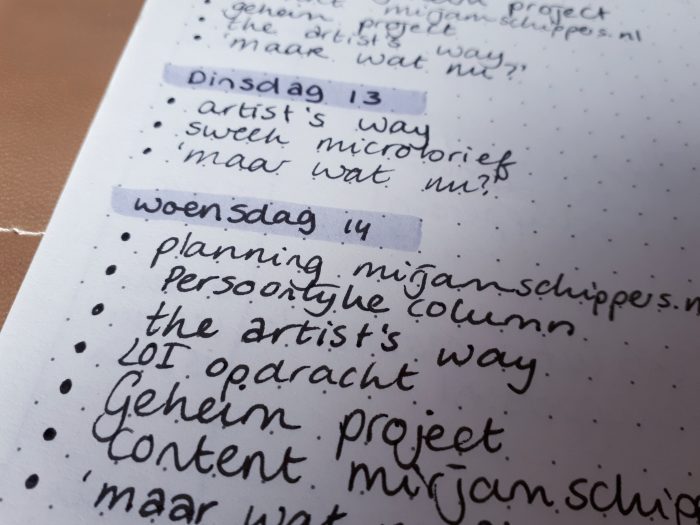 project
geheim mirjamschippers.nl
the artist's way
'maar wat nu?'
Dinsdag 13
artist's way
sweek microbrief
'maar wat nu?'
woensdag 14
planning mirjamschippers.n
Persoonlijke column
the artist's way
LOI opdracht
Geheim project
Content mirjamschip
'maar wat